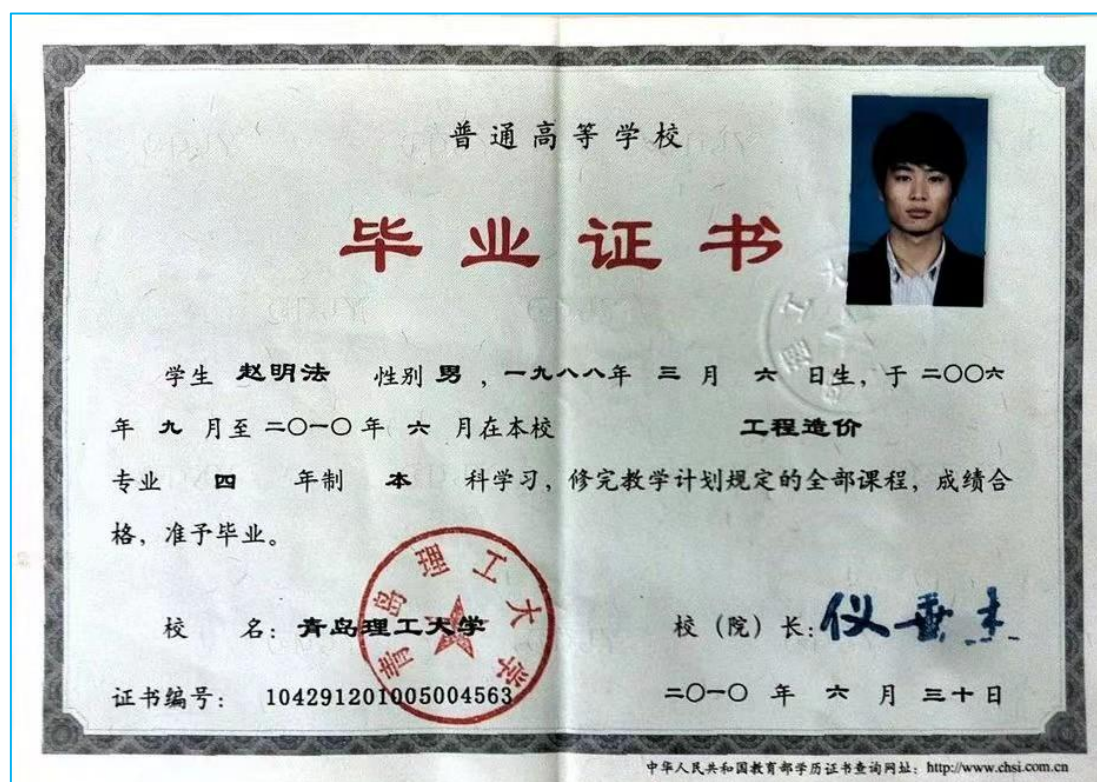 普通高等学校
毕业证书
学生 赵明法 性别 男，一九八八年 三 月 六 日生，于 二〇〇六
年 九 月至 二〇一〇 年 六 月在本校 工程造价
专业 四 年制 本 科学习，修完教学计划规定的全部课程，成绩合
格，准予毕业。
校 名：青岛理工大学
校（院）长：仪垂杰
青岛理工大学
证书编号：104291201005004563
二〇一〇 年 六 月 三十日
中华人民共和国教育部学历证书查询网址：http://www.chsi.com.cn